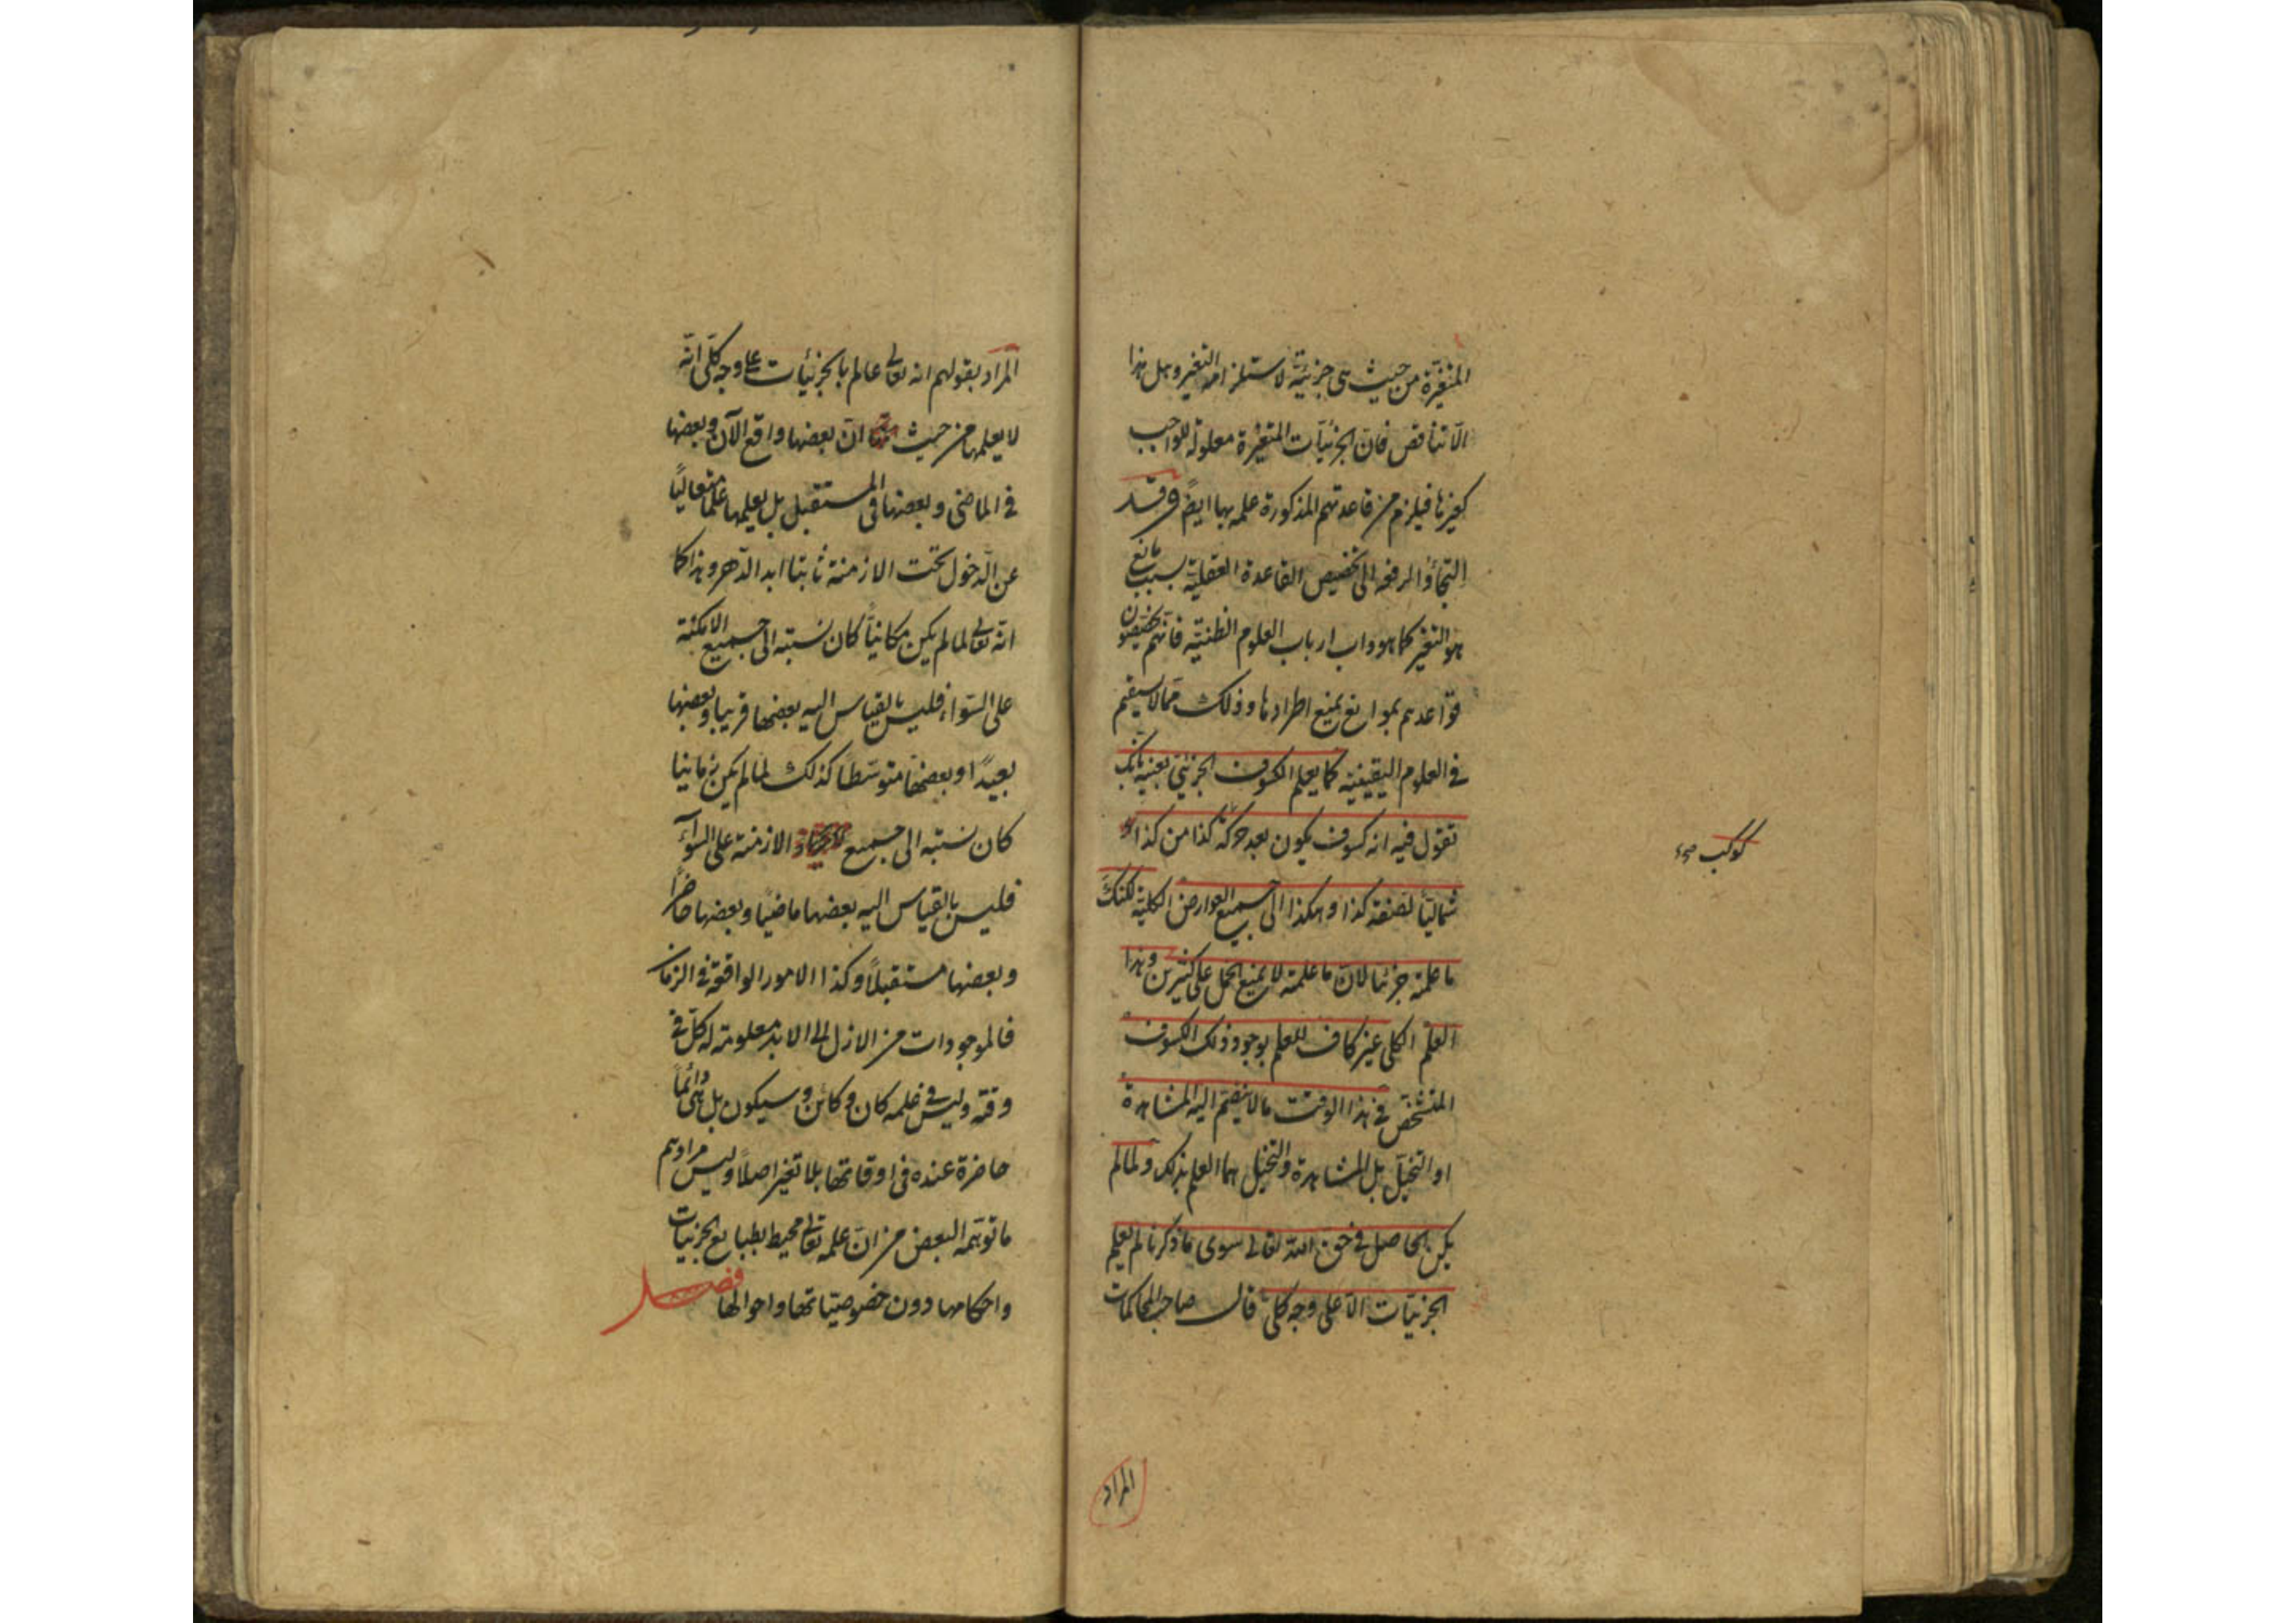 المتغيرة من حيث هى جزئية لاستلزامه التغير وهل هذا
الّا تناقض فانّ الجزئيّات المتغيّرة معلولة للواجب
كغيرها فيلزم من قاعدتهم المذكورة علمه بها ايضًا وقد
التجأوا لرفعه الى تخصيص القاعدة العقليّة بسبب مانع
هو التغير كما هو داب ارباب العلوم الظنيّة فانّهم يخصّصون
قواعدهم بموانع يمنع اطرادها وذلك ممّا لا يستقيم
فى العلوم اليقينيّة كما يعلم الكسوف الجزئيّ بعينه بانك
تقول فيه انه كسوف يكون بعد حركة كذا من كذا
شماليّاً لصفته كذا وهكذا الى جميع العوارض الكلية لكنك
ما علمته جزئيّا لانّ ما علمته لا يمنع الحمل على كثيرين وهذا
العلم الكلى غير كاف للعلم بوجود ذلك الكسوف
المتشخّص فى هذا الوقت ما لا ينضمّ اليه المشاهدة
او التخيّل بل المشاهدة والتخيل هما العلم بذلك ولمّا لم
يكن الحاصل فى حقّ الله تعالى سوى ما ذكرنا لم يعلم
الجزئيّات الّا على وجه كلى قال صاحب المحاكمات
كوكب صح
المراد
المراد بقولهم انه تعالى عالم بالجزئيّات على وجه كلّى انّه
لا يعلمها من حيث انّ بعضها واقع الآن وبعضها
فى الماضى وبعضها فى المستقبل بل يعلمها علمًا متعاليًا
عن الدّخول تحت الازمنة ثابتا ابد الدّهر وهذا كما
انّه تعالى لما لم يكن مكانيّاً كان نسبته الى جميع الامكنة
على السّواء فليس بالقياس اليه بعضها قريبا وبعضها
بعيدًا وبعضها متوسّطًا كذلك لما لم يكن زمانيا
كان نسبته الى جميع الازمنة على السوآء
فليس بالقياس اليه بعضها ماضيًا وبعضها حاضرًا
وبعضها مستقبلًا وكذا الامور الواقعة فى الزمان
فالموجودات من الازل الى الابد معلومة له كلّ فى
وقته وليس فى علمه كان وكائن وسيكون بل هى دائماً
حاضرة عنده فى اوقاتها بلا تغير اصلًا وليس مرادهم
ما توهّمه البعض من انّ علمه تعالى محيط بطبايع الجزئيات
واحكامها دون خصوصيّاتها واحوالها فصل